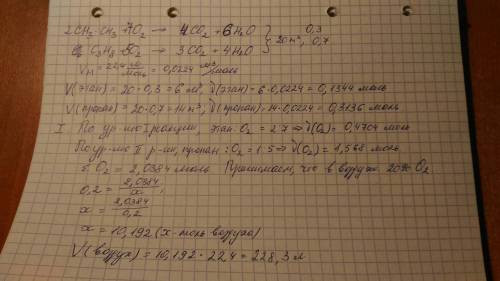 2CH₃-CH₃ + 7O₂ → 4CO₂ + 6H₂O } 0,3
C₃H₈ + 5O₂ → 3CO₂ + 4H₂O } 20 м³, 0,7
Vм = 22,4 л/моль = 0,0224 м³/моль
V(этан) = 20·0,3 = 6 м³, ν(этан) = 6·0,0224 = 0,1344 моль
V(пропан) = 20·0,7 = 14 м³, ν(пропан) = 14·0,0224 = 0,3136 моль
I По ур-нию I реакции, этан: O₂ = 2:7 ⇒ ν(O₂) = 0,4704 моль
По ур-нию II р-ии, пропан : O₂ = 1:5 ⇒ ν(O₂) = 1,568 моль
Σ O₂ = 2,0384 моль Принимаем, что в воздухе 20% O₂
0,2 = 2,0384/x ;
x = 2,0384/0,2
x = 10,192 (x - моль воздуха)
V(воздух) = 10,192 · 22,4 = 228,3 л